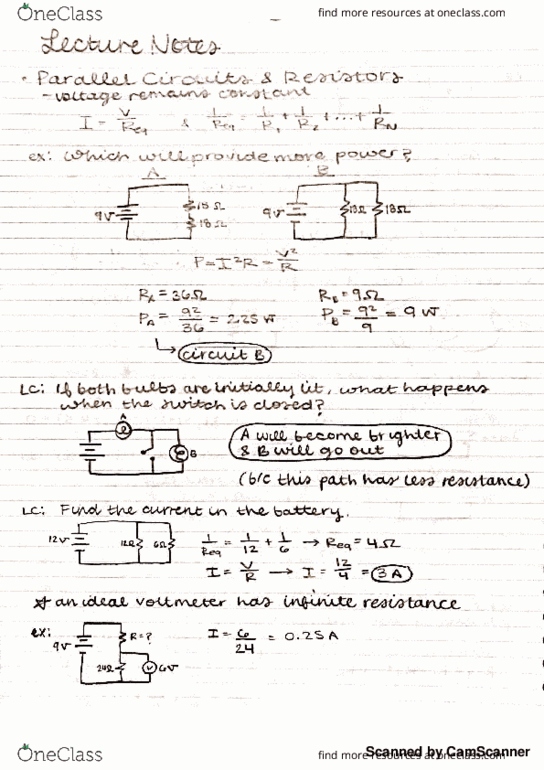 OneClass
find more resources at oneclass.com
Lecture Notes
• Parallel Circuits & Resistors
- voltage remains constant
I = V/Req & 1/Req = 1/R1 + 1/R2 + ... + 1/RN
ex: which will provide more power?
A B
9V 18Ω 18Ω 9V 18Ω 18Ω
P = I²R = V²/R
RA = 36Ω RB = 9Ω
PA = 9²/36 = 2.25 W PB = 9²/9 = 9 W
circuit B
LC: If both bulbs are initially lit, what happens
when the switch is closed?
A
B
A will become brighter
& B will go out
(b/c this path has less resistance)
LC: Find the current in the battery.
12V 12Ω 6Ω 1/Req = 1/12 + 1/6 → Req = 4Ω
I = V/R → I = 12/4 = 3A
* an ideal voltmeter has infinite resistance
ex: 9V R=? 24Ω V 6V I = 6/24 = 0.25A
OneClass
find more resources at oneclass.com
Scanned by CamScanner